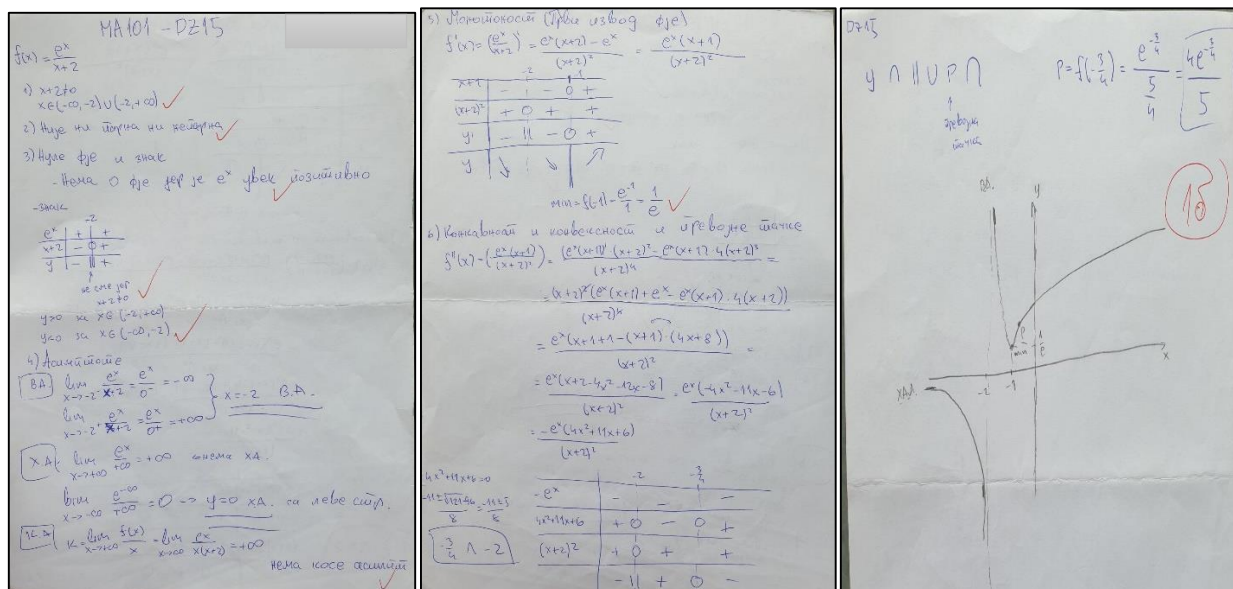 MA101 - DZ15
f(x) = e^x / (x+2)
1) x+2≠0
x∈(-∞,-2)∪(-2,+∞)
2) Није ни парна ни непарна
3) Нуле фје и знак
- Нема 0 фје јер је e^x увек позитивно
- знак
-2
e^x | + | +
x+2 | - 0 +
y | - || +
не сме јер
x+2≠0
y>0 за x∈(-2,+∞)
y<0 за x∈(-∞,-2)
4) Асимптоте
ВА lim x→-2⁻ e^x/(x+2) = e^x/0⁻ = -∞
lim x→-2⁺ e^x/(x+2) = e^x/0+ = +∞
} x=-2 В.А.
ХА lim x→+∞ e^x/+∞ = +∞ нема ХА.
lim x→-∞ e^-∞/+∞ = 0 → y=0 ХА. са леве стр.
К.А. K = lim x→+∞ f(x)/x = lim x→∞ e^x/(x(x+2)) = +∞
нема косе асимпт
5) Монотоност (Први извод фје)
f'(x) = (e^x/(x+2))' = (e^x(x+2) - e^x)/(x+2)² = e^x(x+1)/(x+2)²
-2 -1
- | - 0 +
(x+2)² | + 0 + +
y' | - || - 0 +
y | ↘ | ↘ | ↗
min = f(-1) = e^-1/1 = 1/e
6) Конкавност и конвексност и превојне тачке
f''(x) = (e^x(x+1)/(x+2)²)' = ((e^x(x+1))'·(x+2)² - e^x(x+1)·4(x+2)³)/(x+2)⁴ =
= (x+2)²(e^x(x+1)+e^x - e^x(x+1)·4(x+2))/(x+2)⁴
= e^x(x+1+1-(x+1)·(4x+8))/(x+2)² =
= e^x(x+2-4x²-12x-8)/(x+2)² = e^x(-4x²-11x-6)/(x+2)²
= -e^x(4x²+11x+6)/(x+2)²
4x²+11x+6=0
(-11±√121-96)/8 = (-11±5)/8
-3/4 ∧ -2
-2 -3/4
-e^x | - - -
4x²+11x+6 | + 0 - 0 +
(x+2)² | + 0 + +
- || + 0 -
DZ15
y ∩ || ∪ P ∩
↑
превојна
тачка
P = f(-3/4) = e^(-3/4) / (5/4) = 4e^(-3/4) / 5
15
В.А.
y
P
min
1/e
x
Х.А.
-2
-1